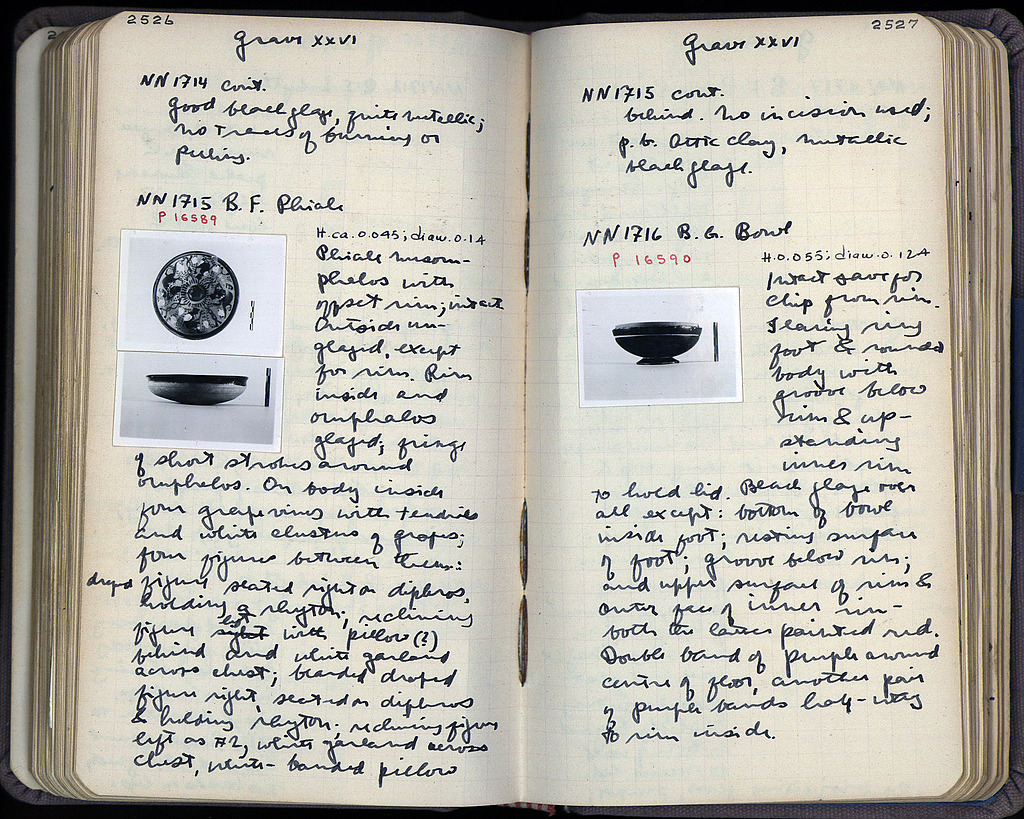 2526
Grave XXVI
NN1714 cont.
Good black glaze, quite metallic;
no traces of burning or
peeling.
NN1715 B.F. Phiale
P 16589
H. ca. 0.045; diam. 0.14
Phiale mesom-
phalos with
offset rim; intact.
Outside un-
glazed, except
for rim. Rim
inside and
omphalos
glazed; fringe
of short strokes around
omphalos. On body inside
four grapevines with tendrils
and white clusters of grapes;
four figures between them:
draped figure seated right on diphros,
holding a rhyton; reclining
figure left with pillow (?)
behind and white garland
across chest; bearded draped
figure right, seated on diphros
& holding rhyton; reclining figure
left as #2, white garland across
chest, white-banded pillow
2527
Grave XXVI
NN1715 cont.
behind. No incision used;
p.b. Attic clay, metallic
black glaze.
NN1716 B.G. Bowl
P 16590
H. 0.055; diam. 0.124
Intact save for
chip from rim.
Flaring ring
foot & rounded
body with
groove below
rim & up-
standing
inner rim
to hold lid. Black glaze over
all except: bottom of bowl
inside foot; resting surface
of foot; groove below rim;
and upper surface of rim &
outer face of inner rim -
both the latter painted red.
Double band of purple around
centre of floor, another pair
of purple bands half-way
to rim inside.